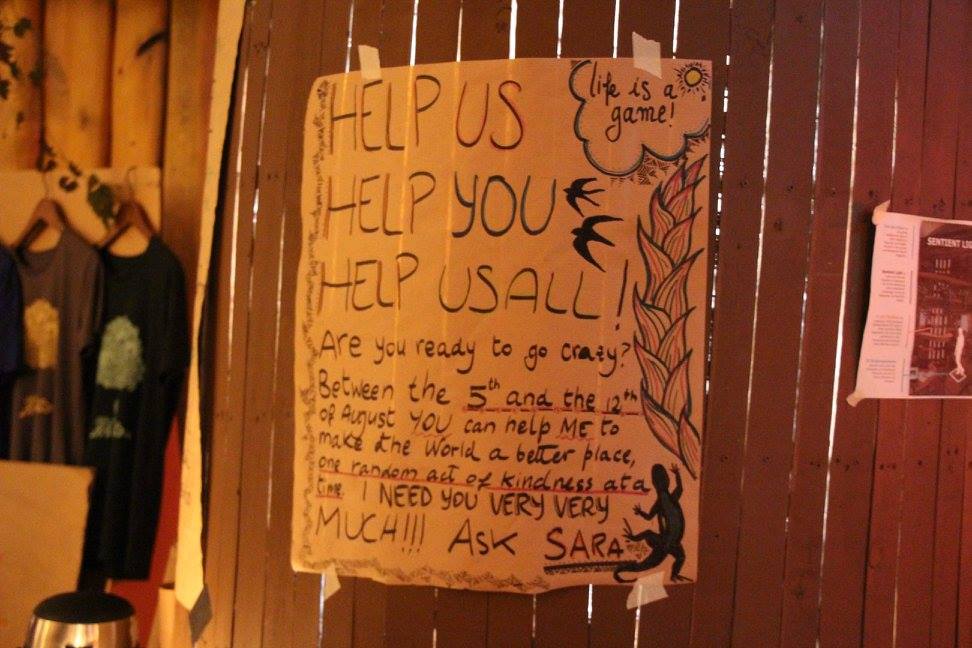 HELP US
life is a
game!
HELP YOU
HELP US ALL!
Are you ready to go crazy?
Between the 5th and the 12th
of August YOU can help ME to
make the World a better place,
one random act of kindness at a
time. I NEED YOU VERY VERY
MUCH!!! ASK SARA
SENTIENT